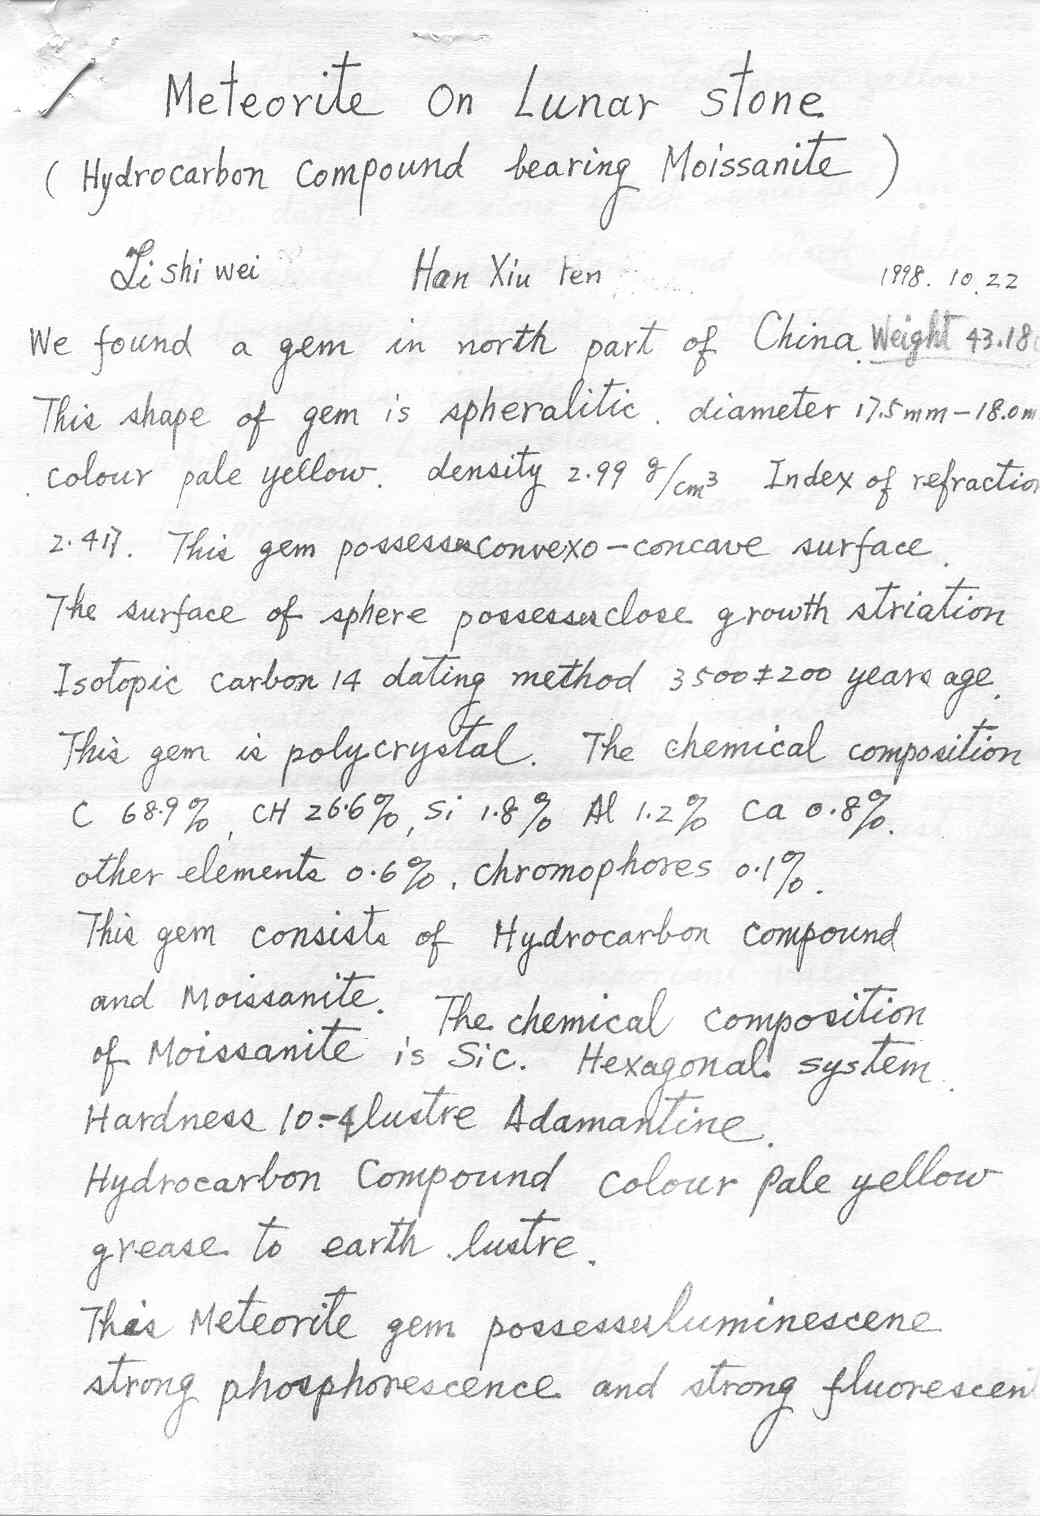 Meteorite on Lunar stone
(Hydrocarbon Compound bearing Moissanite)
Li shi wei Han Xiu ren 1998. 10. 22
We found a gem in north part of China. Weight 43.18
This shape of gem is spheralitic. diameter 17.5mm-18.0m
colour pale yellow. density 2.99 g/cm³ Index of refraction
2.417. This gem possesses convexo-concave surface.
The surface of sphere possesses close growth striation
Isotopic carbon 14 dating method 3500±200 years age.
This gem is polycrystal. The chemical composition
C 68.9%, CH 26.6%, Si 1.8% Al 1.2% Ca 0.8%.
other elements 0.6%. chromophores 0.1%.
This gem consists of Hydrocarbon compound
and Moissanite. The chemical composition
of Moissanite is SiC. Hexagonal system.
Hardness lustre Adamantine.
Hydrocarbon Compound colour pale yellow
grease to earth lustre.
This Meteorite gem possesses luminescene
strong phosphorescence and strong fluorescen